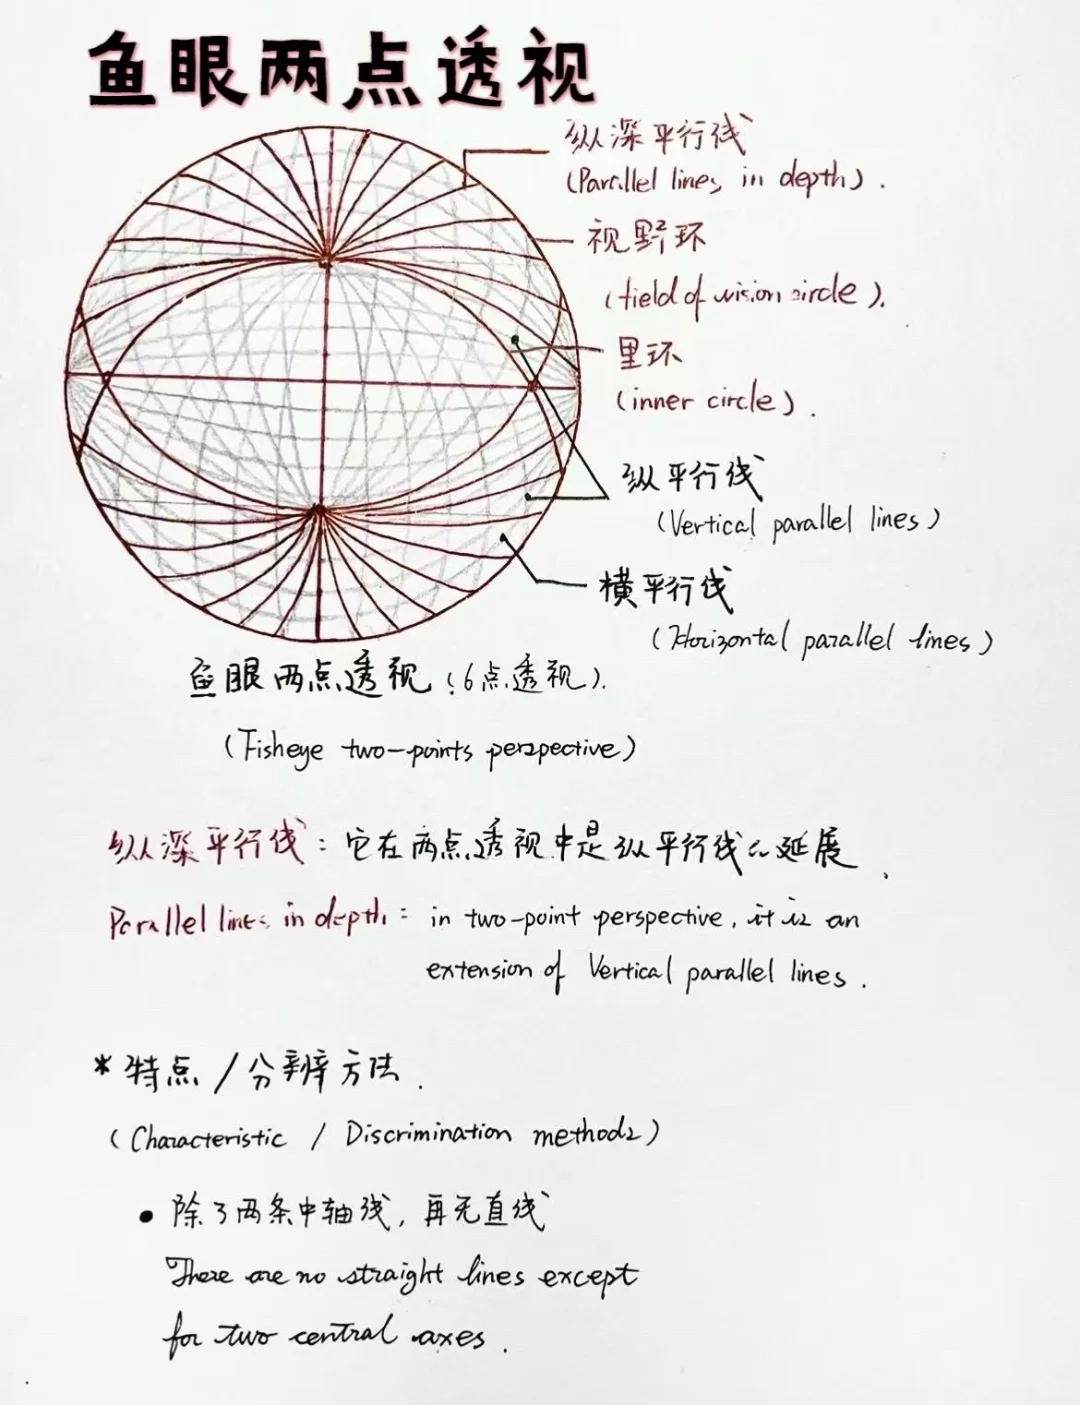 鱼眼两点透视
纵深平行线
(Parallel lines in depth).
视野环
(field of vision circle).
里环
(inner circle).
纵平行线
(Vertical parallel lines)
横平行线
(Horizontal parallel lines)
鱼眼两点透视(6点透视).
(Fisheye two-points perspective)
纵深平行线:它在两点透视中是纵平行线的延展.
Parallel lines in depth: in two-point perspective, it is an
extension of Vertical parallel lines.
*特点/分辨方法.
(Characteristic / Discrimination methods)
• 除了两条中轴线,再无直线
There are no straight lines except
for two central axes.